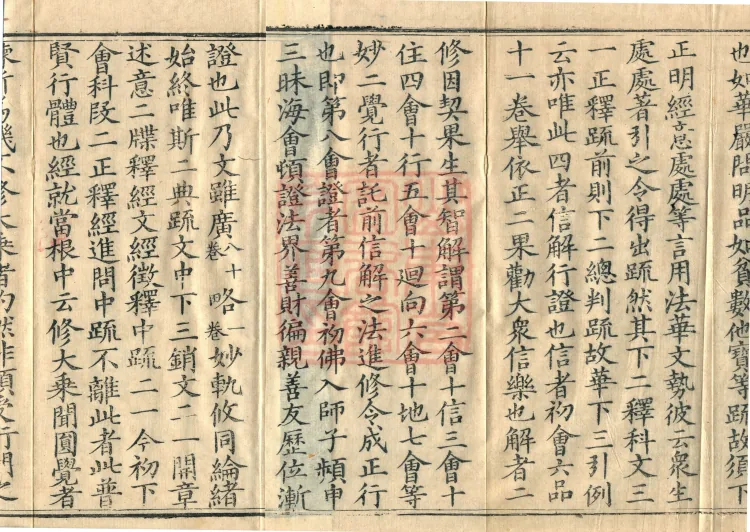 也如華嚴問明品如貧數他寶等疏故須下
正明經意處處等言用法華文勢彼云衆生
處處著引之令得出疏然其下二釋科文三
一正釋疏前則下二總判疏故華下三引例
云亦唯此四者信解行證也信者初會六品
十一卷舉依正二果勸大衆信樂也解者二
修因契果生其智解謂第二會十信三會十
住四會十行五會十迴向六會十地七會等
妙二覺行者託前信解之法進修令成正行
也即第八會證者第九會初佛入師子頻申
三昧海會頓證法界善財徧親善友歷位漸
證也此乃文雖廣八十卷略一卷妙軌攸同綸緒
始終唯斯二典疏文中下三銷文二一開章
述意二牒釋經文經徵釋中疏二一今初下
會科段二正釋經進問中疏不離此者此普
賢行體也經就當根中云修大乘聞圓覺者
修大乘者灼然非頓受行門之